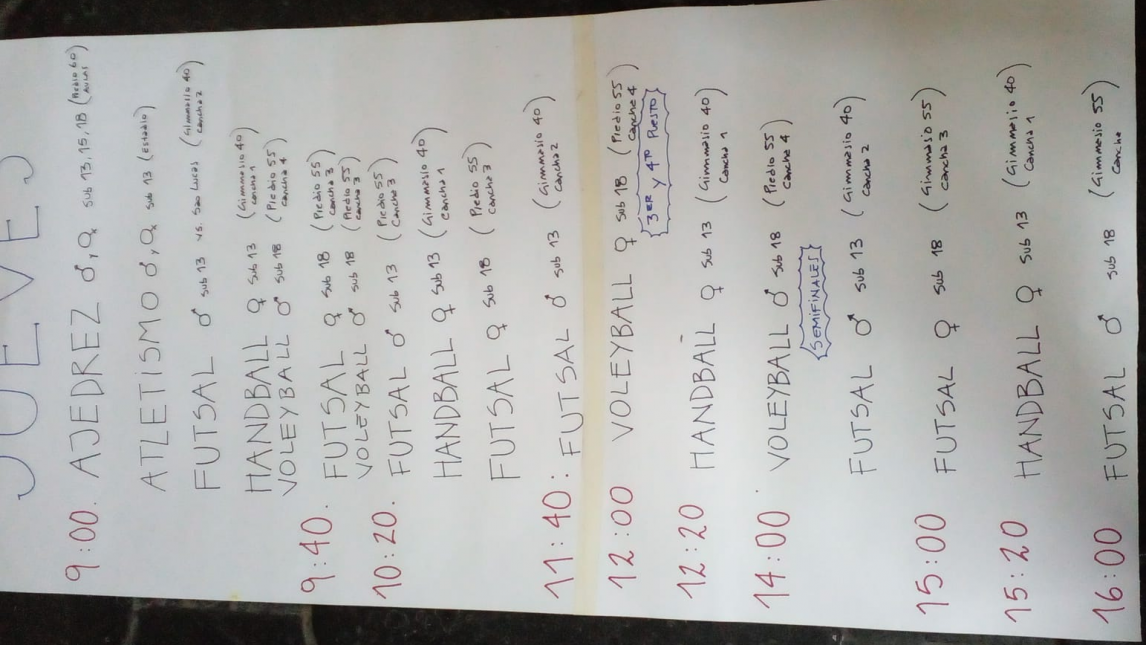 JUEVES
9:00. AJEDREZ ♂,♀ sub 13,15,18 (Predio 60 AULAS)
ATLETISMO ♂,♀ sub 13 (Estadio)
FUTSAL ♂ sub 13 vs. Sao Lucas (Gimnasio 40 cancha 2)
HANDBALL ♀ sub 13 (Gimnasio 40 cancha 1)
VOLEYBALL ♂ sub 18 (Predio 55 cancha 4)
9:40. FUTSAL ♀ sub 18 (Predio 55 cancha 3)
VOLEYBALL ♂ sub 18 (Predio 55 cancha 3)
10:20. FUTSAL ♂ sub 13 (Predio 55 cancha 3)
HANDBALL ♀ sub 13 (Gimnasio 40 cancha 1)
FUTSAL ♀ sub 18 (Predio 55 cancha 3)
11:40: FUTSAL ♂ sub 13 (Gimnasio 40 cancha 2)
12:00 VOLEYBALL ♀ sub 18 (Predio 55 cancha 4)
{3ER Y 4TO PUESTO}
12:20 HANDBALL ♀ sub 13 (Gimnasio 40 cancha 1)
14:00. VOLEYBALL ♂ sub 18 (Predio 55 cancha 4)
{SEMIFINALES}
FUTSAL ♂ sub 13 (Gimnasio 40 cancha 2)
15:00 FUTSAL ♀ sub 18 (Gimnasio 55 cancha 3)
15:20 HANDBALL ♀ sub 13 (Gimnasio 40 cancha 1)
16:00 FUTSAL ♂ sub 18 (Gimnasio 55 cancha)